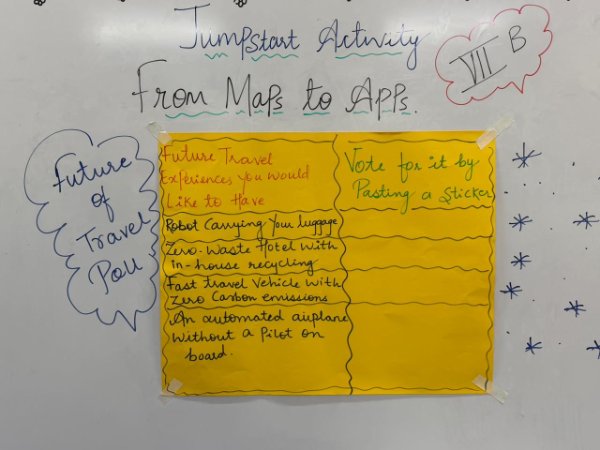 Jumpstart Activity
VII B
From Maps to Apps.
Future
of
Travel
Poll
Future Travel
Experiences you would
Like to Have
Vote for it by
Pasting a Sticker
Robot Carrying Your luggage
Zero-Waste Hotel With
in-house recycling
Fast travel Vehicle with
Zero Carbon emissions
An automated airplane
Without a Pilot on
board.